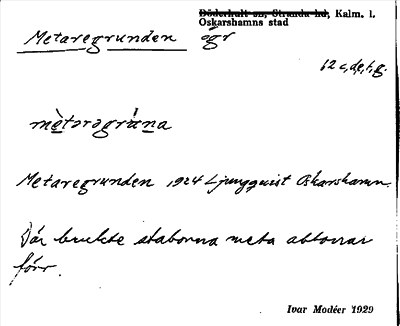 Döderhult sn, Stranda hd, Kalm. l.
Oskarshamns stad
Metaregrunden ögr
62 c,d,e,f,g.
mètərəgrùna
Metaregrunden 1924 Ljungquist Oskarshamn.
Där brukte staborna meta abborrar
förr.
Ivar Modéer 1929